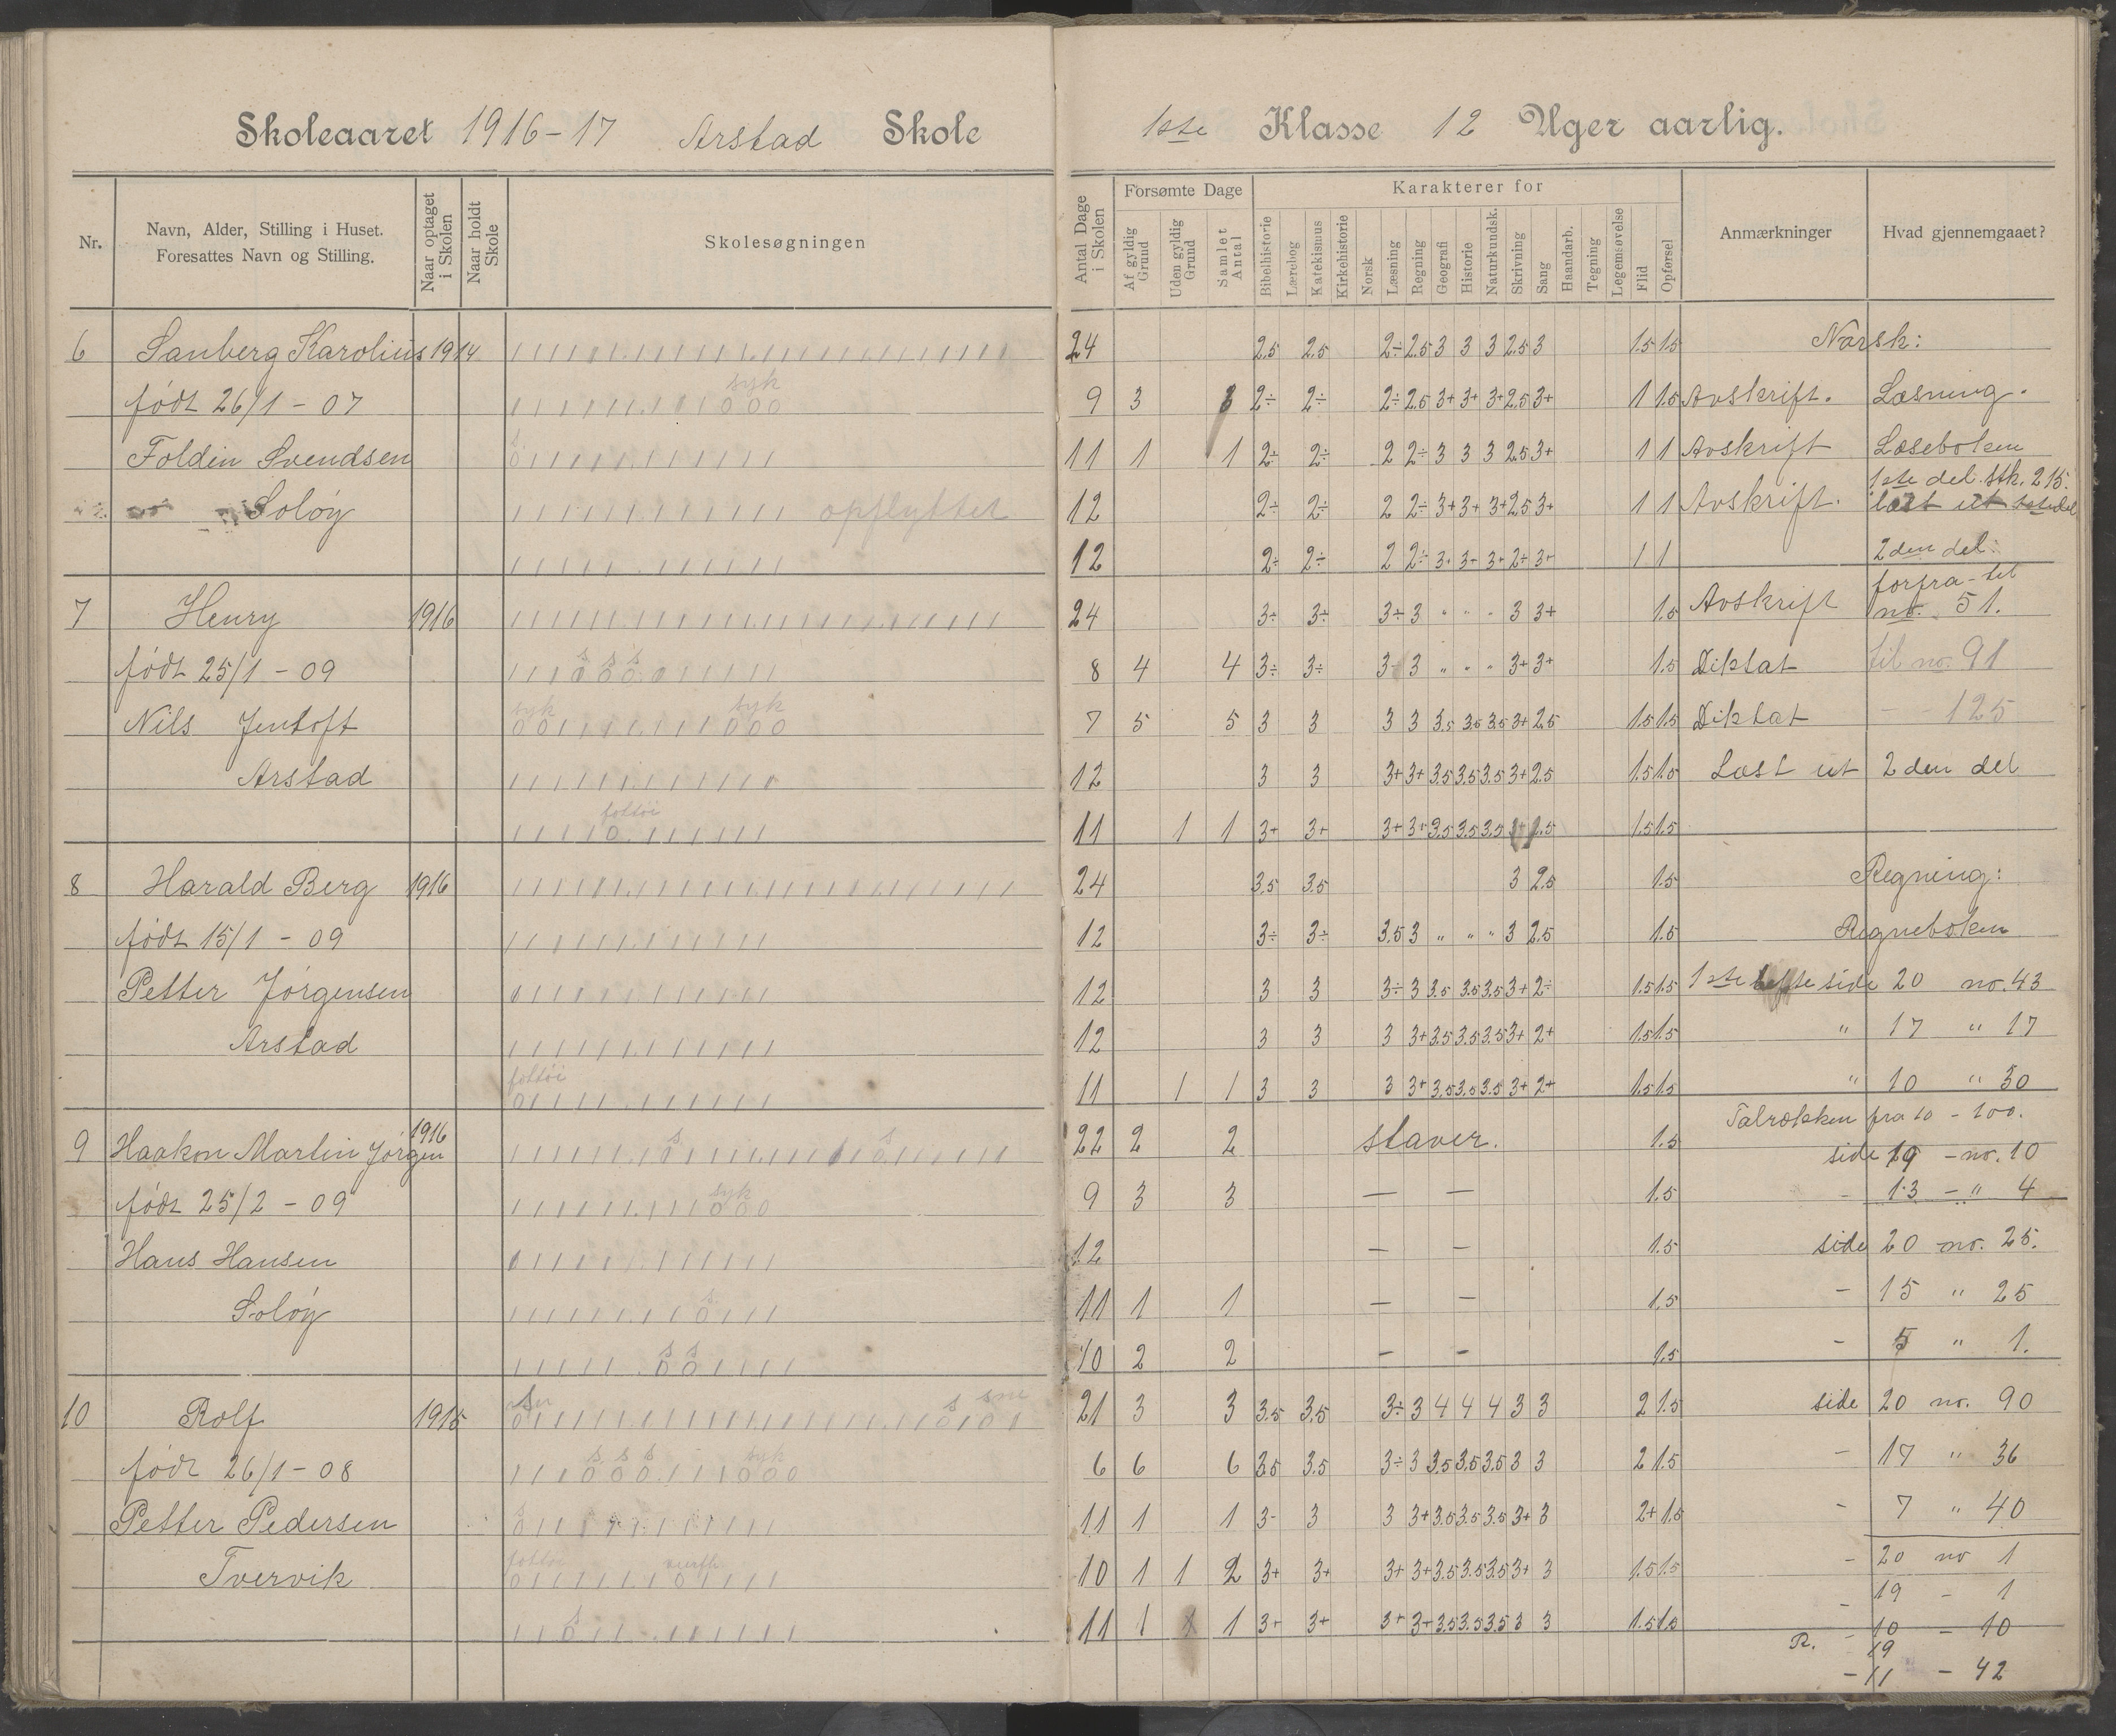 Skoleaaret 1916-17 Arstad Skole
1ste Klasse 12 Uger aarlig.
Nr.
Navn, Alder, Stilling i Huset.
Foresattes Navn og Stilling.
Naar optaget i Skolen
Naar holdt Skole
Skolesøgningen
Antal Dage i Skolen
Forsømte Dage
Af gyldig Grund
Uden gyldig Grund
Samlet Antal
Karakterer for
Bibelhistorie
Lærebog
Katekismus
Kirkehistorie
Norsk
Læsning
Regning
Geografi
Historie
Naturkundsk.
Skrivning
Sang
Haandarb.
Tegning
Legemsøvelse
Flid
Opførsel
Anmærkninger
Hvad gjennemgaaet?
6 Sanberg Karolius 1914
24 2.5 2.5 2÷ 2.5 3 3 3 2.5 3 1.5 1.5 Norsk:
født 26/1 - 07 syk
9 3 3 2÷ 2÷ 2÷ 2.5 3+ 3+ 3+ 2.5 3+ 1 1.5 Avskrift. Læsning.
Foldin Svendsen s
11 1 1 2÷ 2÷ 2 2÷ 3 3 3 2.5 3+ 1 1 Avskrift Læseboken
1ste del. stk. 215.
Soløy opflyttet
12 2÷ 2÷ 2 2÷ 3+ 3+ 3+ 2.5 3+ 1 1 Avskrift. læst ut
12 2÷ 2÷ 2 2÷ 3+ 3+ 3+ 2÷ 3+ 1 1 2den del:
forfra - til
7 Henry 1916
24 3÷ 3÷ 3÷ 3 " " " 3 3+ 1.5 Avskrift no. 51.
født 25/1 - 09 s s s
8 4 4 3÷ 3÷ 3÷ 3 " " " 3+ 3+ 1.5 Diktat til no. 91
Nils Jentoft syk syk
7 5 5 3 3 3 3 3.5 3.5 3.5 3+ 2.5 1.5 1.5 Diktat - - 125
Arstad
12 3 3 3+ 3+ 3.5 3.5 3.5 3+ 2.5 1.5 1.5 Læst ut 2den del
fottøi
11 1 1 3+ 3+ 3+ 3+ 3.5 3.5 3.5 3+ 2.5 1.5 1.5
8 Harald Berg 1916
24 3.5 3.5 3 2.5 1.5 Regning:
født 15/1 - 09
12 3÷ 3÷ 3.5 3 " " " 3 2.5 1.5 Regneboken
Petter Jørgensen
12 3 3 3÷ 3 3.5 3.5 3.5 3+ 2÷ 1.5 1.5 1ste hefte side 20 no. 43
Arstad
12 3 3 3 3+ 3.5 3.5 3.5 3+ 2+ 1.5 1.5 " 17 " 17
fottøi
11 1 1 3 3 3 3+ 3.5 3.5 3.5 3+ 2+ 1.5 1.5 " 10 " 30
Talrækken fra 10 - 100.
9 Haakon Martin Jørgen 1916 s s
22 2 2 staver. 1.5 side 19 - no. 10
født 25/2 - 09 syk
9 3 3 — — 1.5 - 13 - " 4
Hans Hansen
12 — — 1.5 side 20 no. 25.
Soløy s
11 1 1 — — 1.5 - 15 " 25
s s
10 2 2 — — 1.5 - 5 " 1.
10 Rolf 1915 s sne
21 3 3 3.5 3.5 3÷ 3 4 4 4 3 3 2 1.5 side 20 no. 90
født 26/1 - 08 s s s syk
6 6 6 3.5 3.5 3÷ 3 3.5 3.5 3.5 3 3 2 1.5 - 17 " 36
Petter Pedersen s
11 1 1 3- 3 3 3+ 3.5 3.5 3.5 3+ 3 2+ 1.5 - 7 " 40
Tvervik fottøi
10 1 1 2 3+ 3+ 3+ 3+ 3.5 3.5 3.5 3+ 3 1.5 1.5 - 20 no 1
- 19 - 1
s
11 1 1 3+ 3+ 3+ 3+ 3.5 3.5 3.5 3 3 1.5 1.5 - 10 - 10
R. 19
- 11 - 42